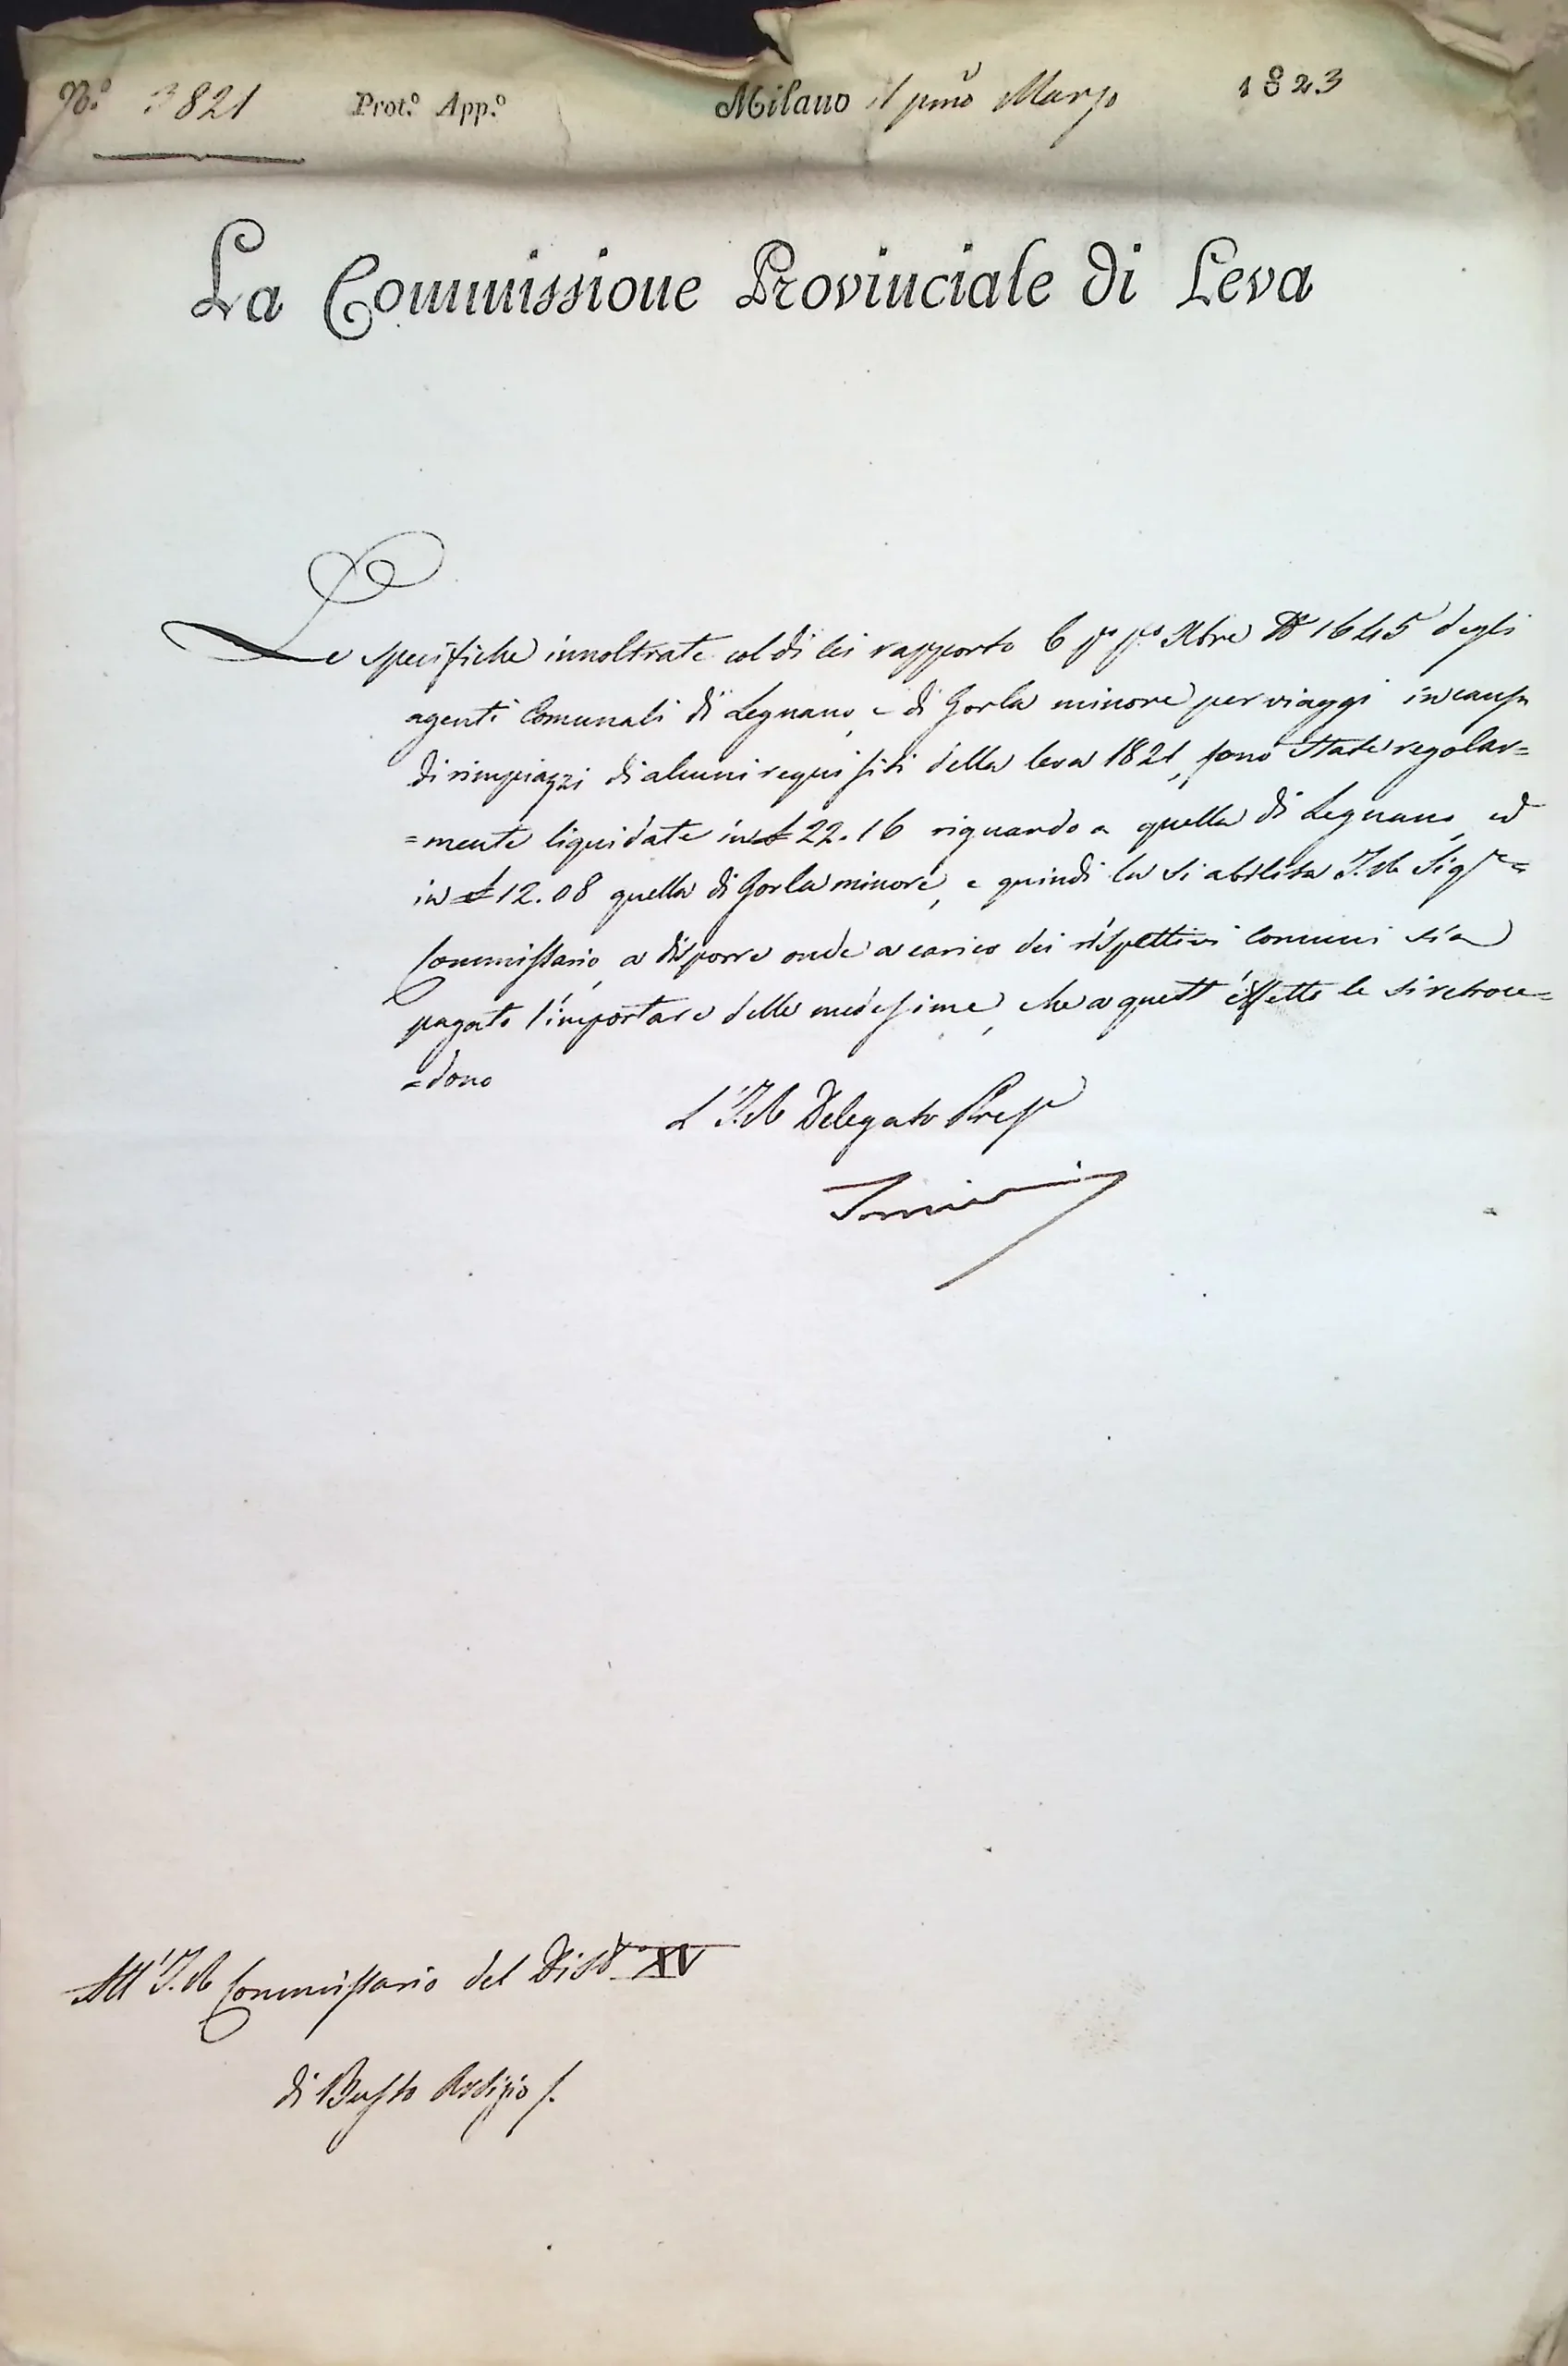 N.º 3821 Prot.º App.º Milano il pmo Marzo 1823
La Commissione Provinciale di Leva
Le specifiche innoltrate col di lei rapporto 6 pº pº Xbre Nº 1645 degli
agenti Comunali di Legnano, e di Gorla minore per viaggi in causa
di rimpiazzi di alcuni requisiti della leva 1821, sono state regolar=
=mente liquidate in £ 22.16 riguardo a quella di Legnano, ed
in £ 12.08 quella di Gorla minore, e quindi la si abilita I.R. Sigr=
Commissario, a disporre onde a carico dei rispettivi comuni sia
pagato l'importare delle medesime, che a quest'effetto le si retroce=
=dono
L'I.R. Delegato Presº
All'I.R. Commissario del Distº XV
di Busto Arsizio